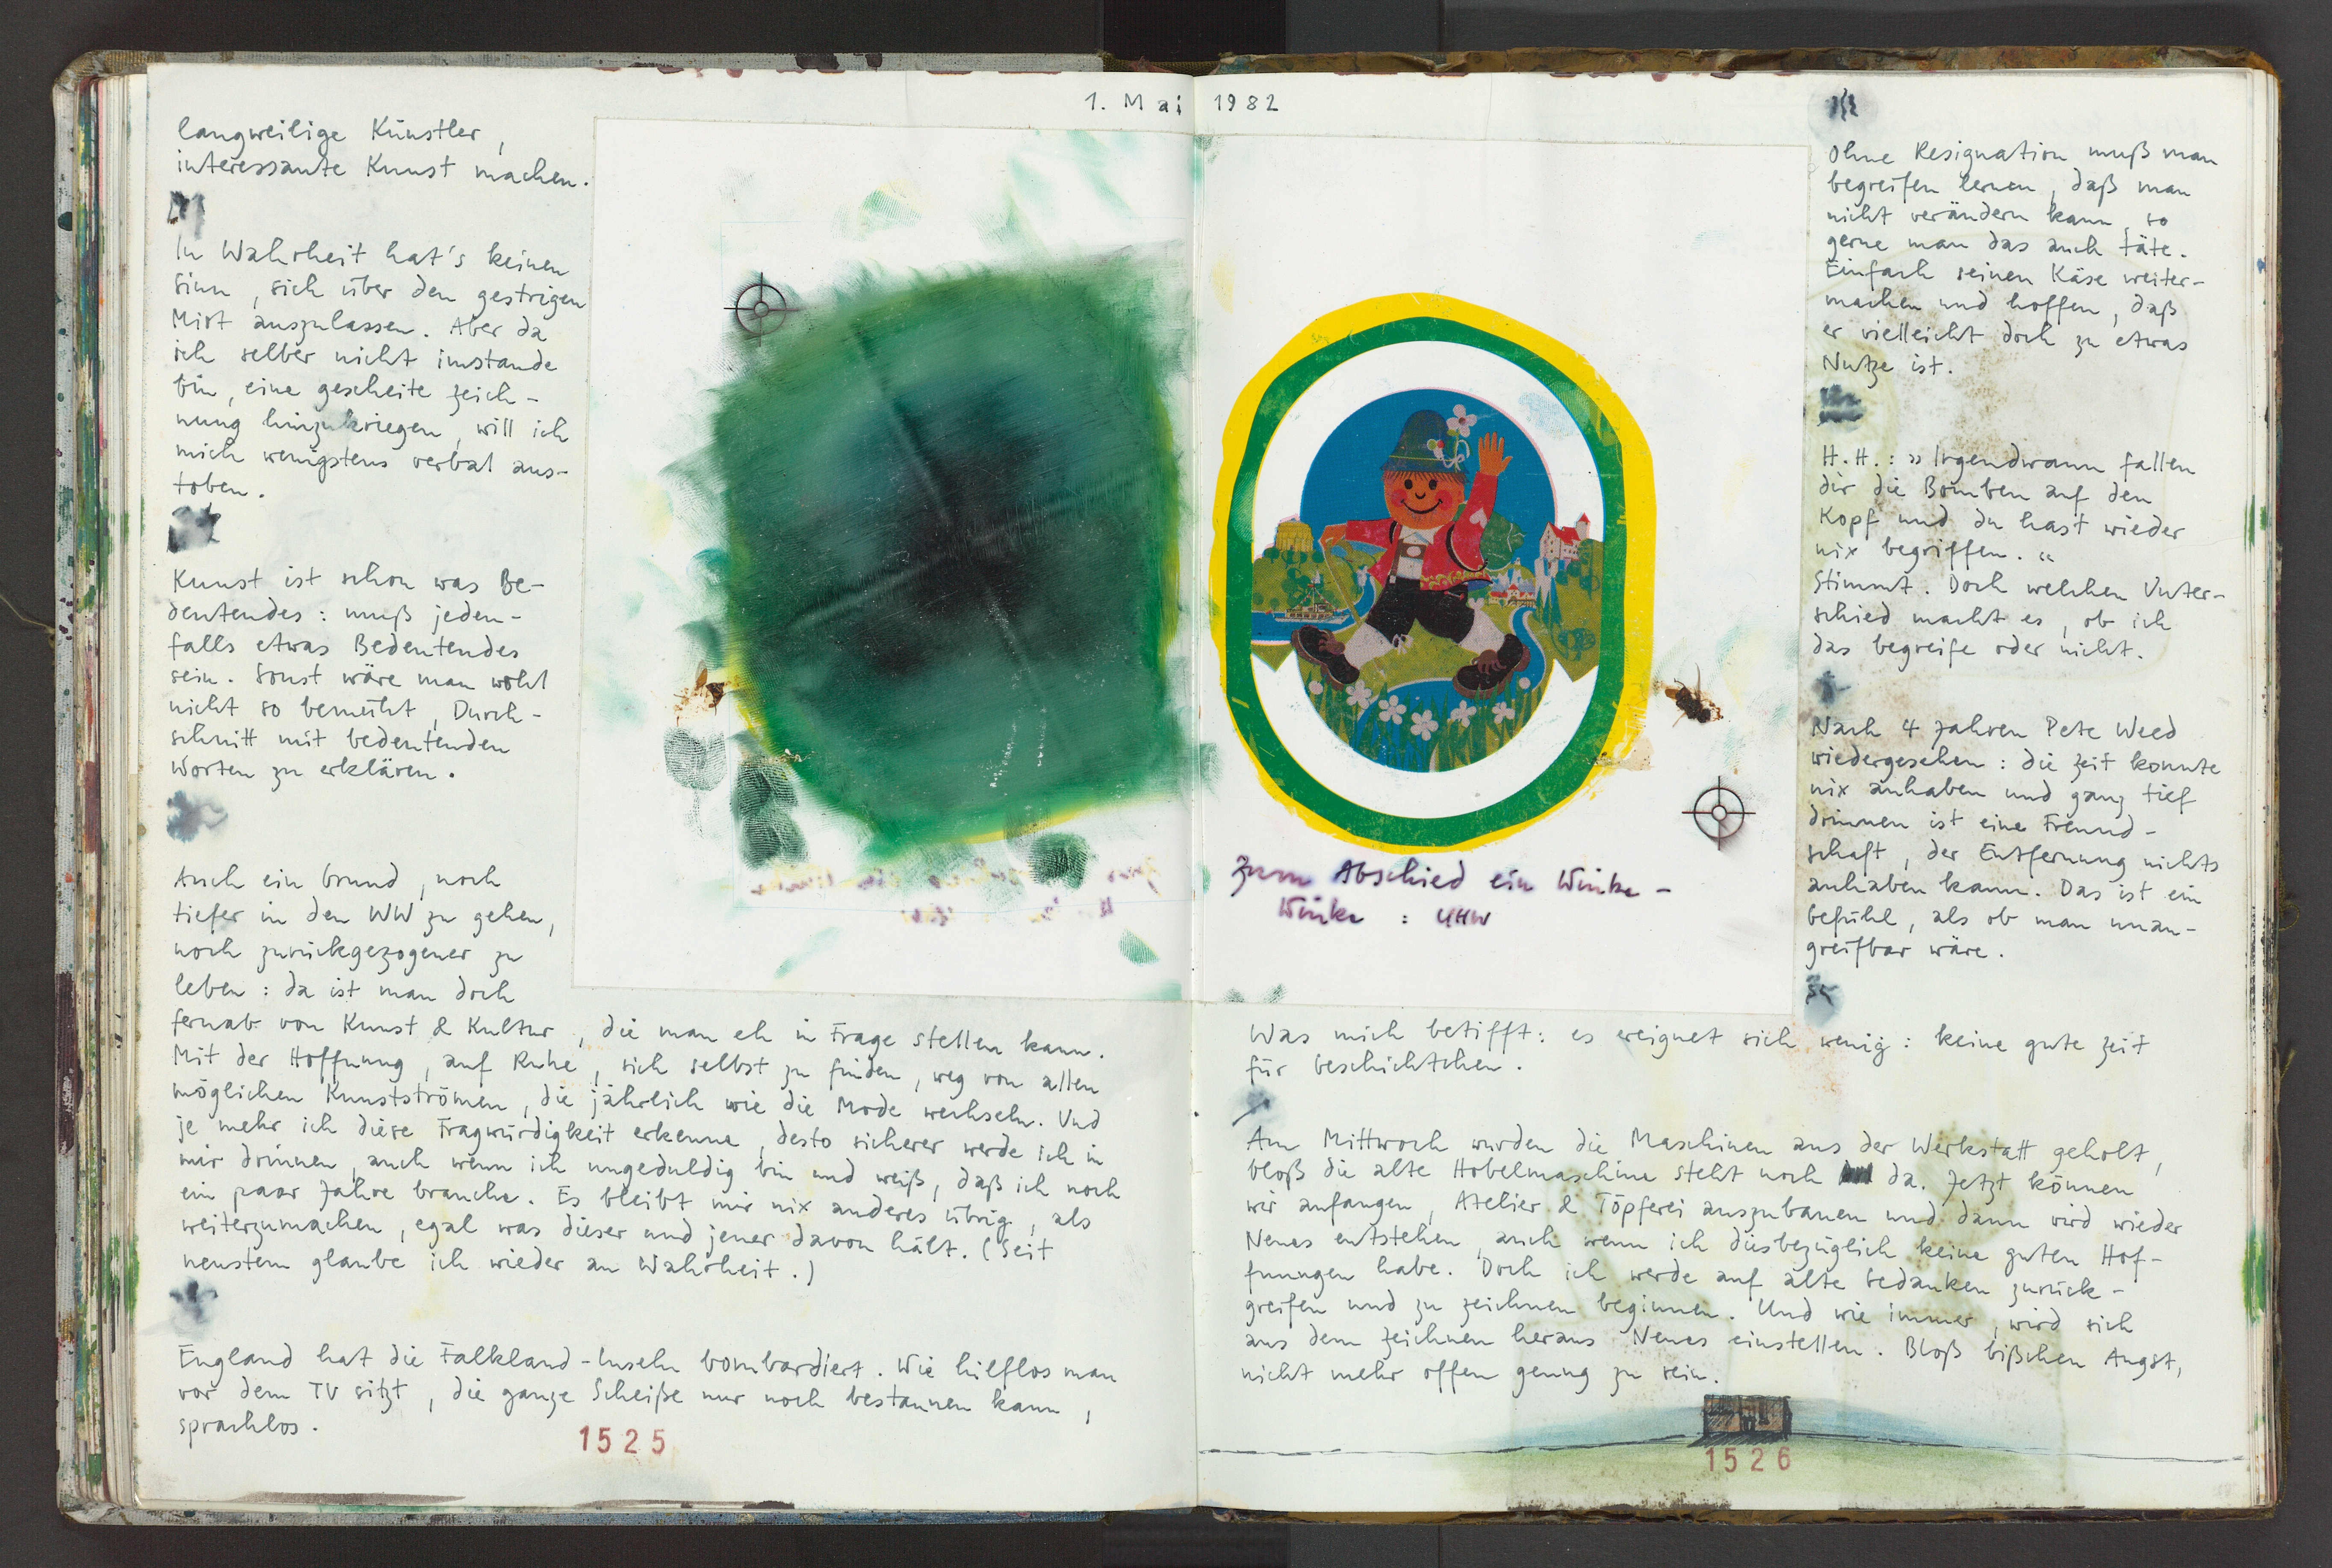 1. Mai 1982
langweilige Künstler,
interessante Kunst machen.
In Wahrheit hat's keinen
Sinn, sich über den gestrigen
Mist auszulassen. Aber da
ich selber nicht imstande
bin, eine gescheite Zeich-
nung hinzukriegen, will ich
mich wenigstens verbal aus-
toben.
Kunst ist schon was Be-
deutendes: muß jeden-
falls etwas Bedeutendes
sein. Sonst wäre man wohl
nicht so bemüht, Durch-
schnitt mit bedeutenden
Worten zu erklären.
Auch ein Grund, noch
tiefer in den WW zu gehen,
noch zurückgezogener zu
leben: da ist man doch
fernab von Kunst & Kultur, die man eh in Frage stellen kann.
Mit der Hoffnung, auf Ruhe, sich selbst zu finden, weg von allen
möglichen Kunstströmen, die jährlich wie die Mode wechseln. Und
je mehr ich diese Fragwürdigkeit erkenne, desto sicherer werde ich in
mir drinnen, auch wenn ich ungeduldig bin und weiß, daß ich noch
ein paar Jahre brauche. Es bleibt mir nix anderes übrig, als
weiterzumachen, egal was dieser und jener davon hält. (Seit
neustem glaube ich wieder an Wahrheit.)
England hat die Falkland-Inseln bombardiert. Wie hilflos man
vor dem TV sitzt, die ganze Scheiße nur noch bestaunen kann,
sprachlos.
1525
Zum Abschied ein Winke-
Winke: UHW
Ohne Resignation muß man
begreifen lernen, daß man
nicht verändern kann, so
gerne man das auch täte.
Einfach seinen Käse weiter-
machen und hoffen, daß
er vielleicht doch zu etwas
Nutze ist.
H.H.: » Irgendwann fallen
dir die Bomben auf den
Kopf und du hast wieder
nix begriffen. «
Stimmt. Doch welchen Unter-
schied macht es, ob ich
das begreife oder nicht.
Nach 4 Jahren Pete Weed
wiedergesehen: die Zeit konnte
nix anhaben und ganz tief
drinnen ist eine Freund-
schaft, der Entfernung nichts
anhaben kann. Das ist ein
Gefühl, als ob man unan-
greifbar wäre.
Was mich betifft: es ereignet sich wenig: keine gute Zeit
für Geschichtchen.
Am Mittwoch wurden die Maschinen aus der Werkstatt geholt,
bloß die alte Hobelmaschine steht noch da. Jetzt können
wir anfangen, Atelier & Töpferei auszubauen und dann wird wieder
Neues entstehen, auch wenn ich diesbezüglich keine guten Hof-
fnungen habe. Doch ich werde auf alte Gedanken zurück-
greifen und zu zeichnen beginnen. Und wie immer, wird sich
aus dem Zeichnen heraus Neues einstellen. Bloß bißchen Angst,
nicht mehr offen genug zu sein.
1526